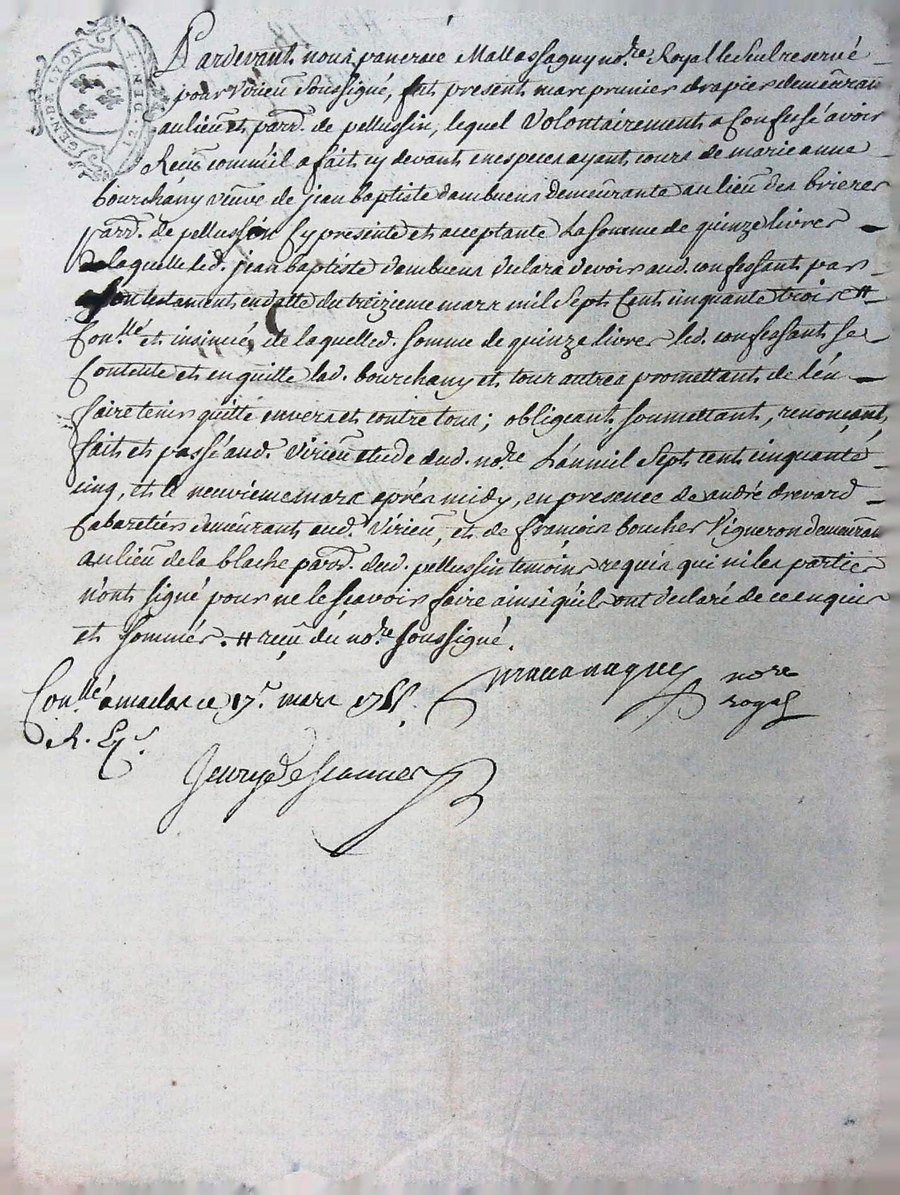 GENER. LION
Pardevant nous pancrace Mallassagny no.re Royal le Seul reservé
pour Virieu Soussigné, fut present marc prunier drapier demeurant
au lieu et parr. de pellussin, lequel Volontairement a Confessé avoir
Receu comm'il a fait cy devant en especes ayant cours de marie anne
bourchany veuve de jean baptiste dambuens demeurante au lieu des brieres
parr. de pellussin Cy presente et acceptante La Somme de quinze livres
laquelle led. jean baptiste dambuens declara devoir aud. confessant par
son testament en datte du treizieme mars mil Sept Cent cinquante trois #
Con.llé et insinué, de laquelle d. somme de quinze livres led. confessant se
Contente et en quitte lad. bourchany et tous autres promettant de l'en
faire tenir quitte envers et contre tous; obligeant, soumettant, renonçant,
fait et passé aud. Virieu etude dud. no.re L'an mil Sept cent cinquante
cinq, et le neuvieme mars aprés midy, en presence de andré drevard
Cabaretier demeurant aud. Virieu, et de françois boucher Vigneron demeurant
au lieu de la blache parr. dud. pellussin temoins requis qui ni les parties
n'ont signé pour ne le scavoir faire ainsi qu'ils ont declaré de ce enquis
et sommés. # receu du no.re soussigné.
no.re
royal
Con.llé a maclas ce 17.e mars 1755.
R.